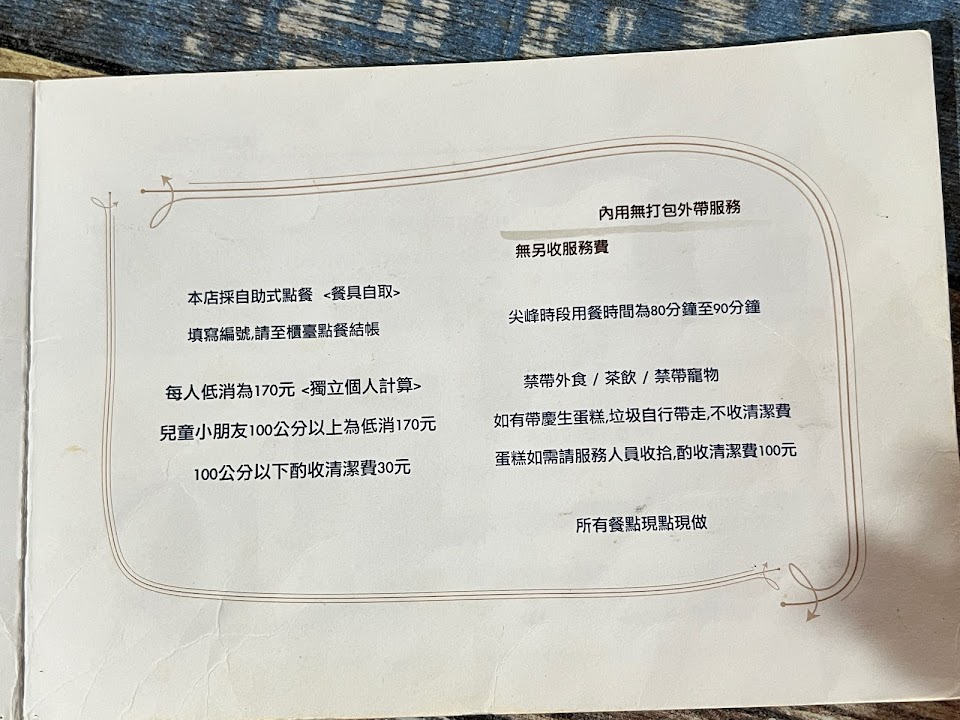 本店採自助式點餐 <餐具自取>
填寫編號,請至櫃臺點餐結帳
每人低消為170元 <獨立個人計算>
兒童小朋友100公分以上為低消170元
100公分以下酌收清潔費30元
內用無打包外帶服務
無另收服務費
尖峰時段用餐時間為80分鐘至90分鐘
禁帶外食 / 茶飲 / 禁帶寵物
如有帶慶生蛋糕,垃圾自行帶走,不收清潔費
蛋糕如需請服務人員收拾,酌收清潔費100元
所有餐點現點現做